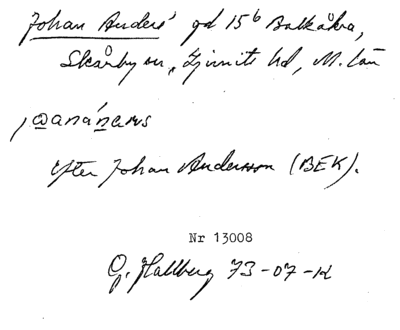 Johan Anders' gd 15b Balkåkra,
Skårby sn, Ljunits hd, M. län
Efter Johan Andersson (BEK).
Nr 13008
G. Hallberg 73-07-12